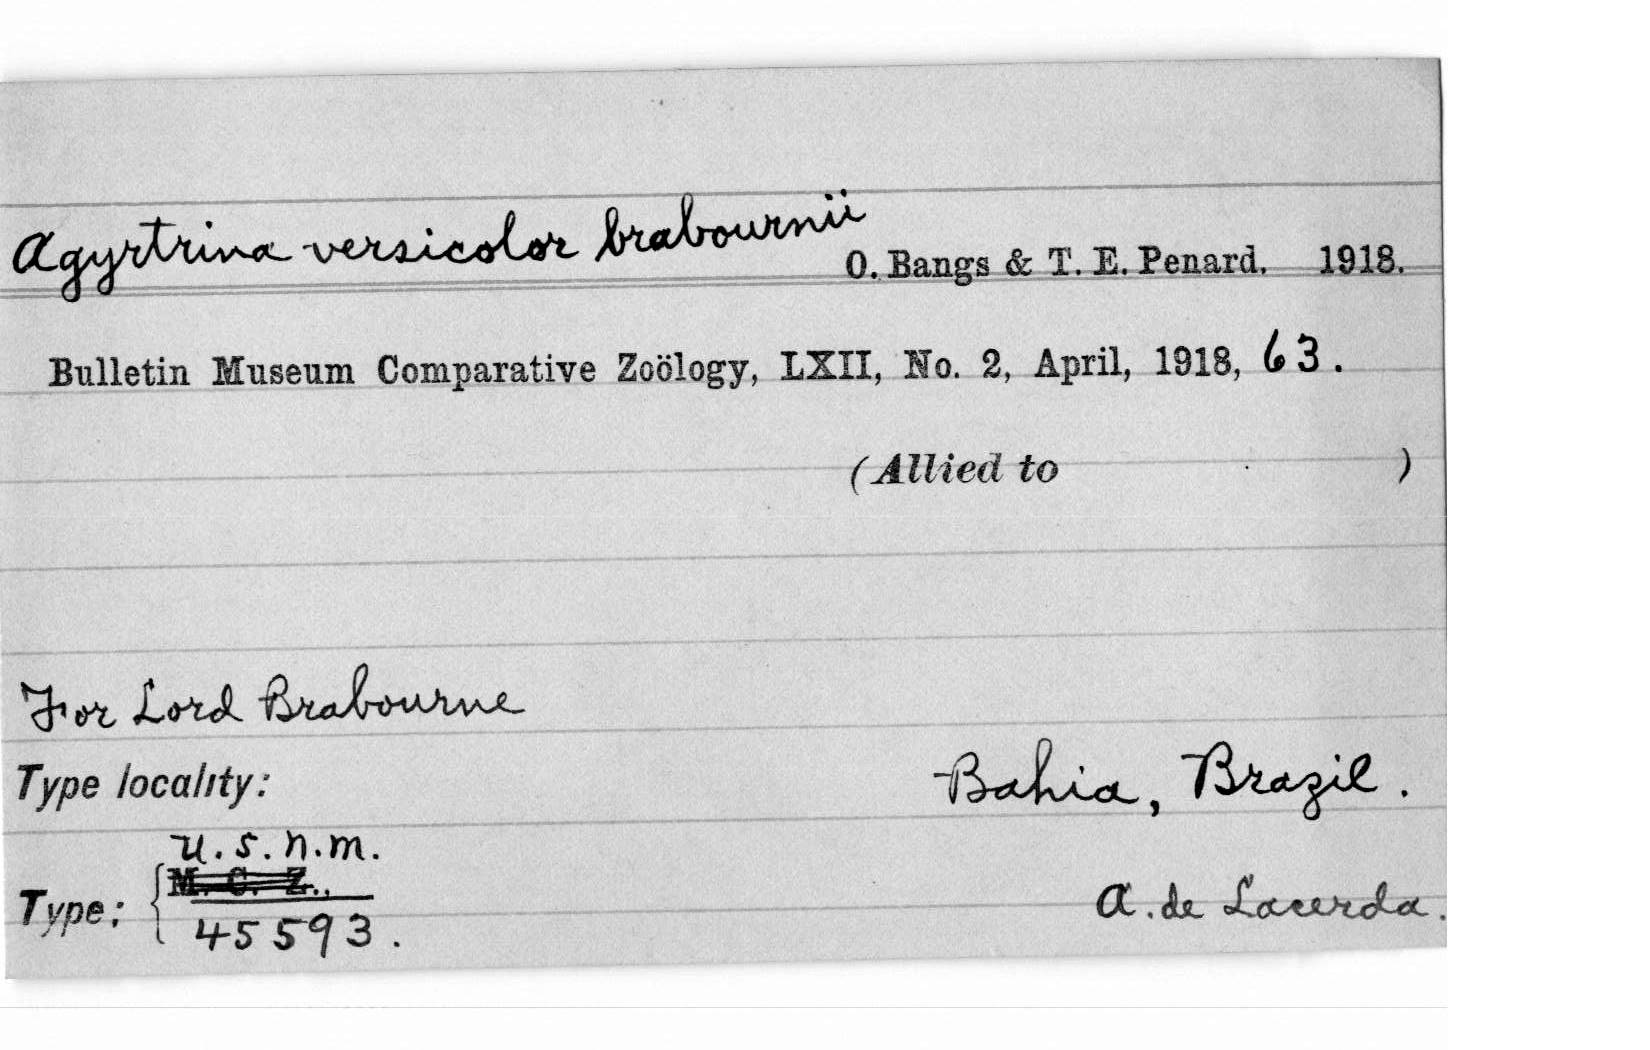 Agyrtrina versicolor brabournii
O. Bangs & T. E. Penard. 1918.
Bulletin Museum Comparative Zoölogy, LXII, No. 2, April, 1918, 63.
(Allied to )
For Lord Brabourne
Type locality: Bahia, Brazil.
U.S.N.M.
M. C. Z.,
Type: 45593. A. de Lacerda.